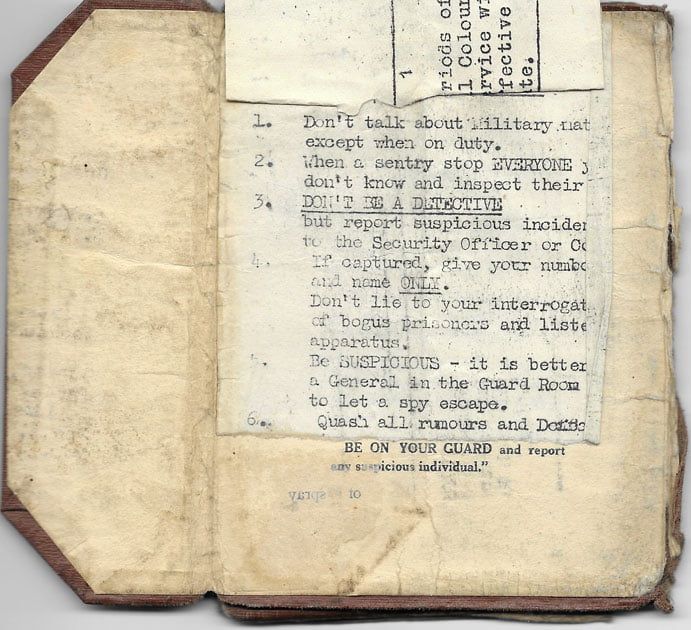 1
riods of
l Colour
rvice wi
fective
te.
1. Don't talk about Military mat
except when on duty.
2. When a sentry stop EVERYONE y
don't know and inspect their
3. DON'T BE A DETECTIVE
but report suspicious inciden
to the Security Officer or Co
4. If captured, give your numbe
and name ONLY.
Don't lie to your interrogat
of bogus prisoners and liste
apparatus.
Be SUSPICIOUS - it is better
a General in the Guard Room
to let a spy escape.
6. Quash all rumours and
BE ON YOUR GUARD and report
any suspicious individual."
or spray